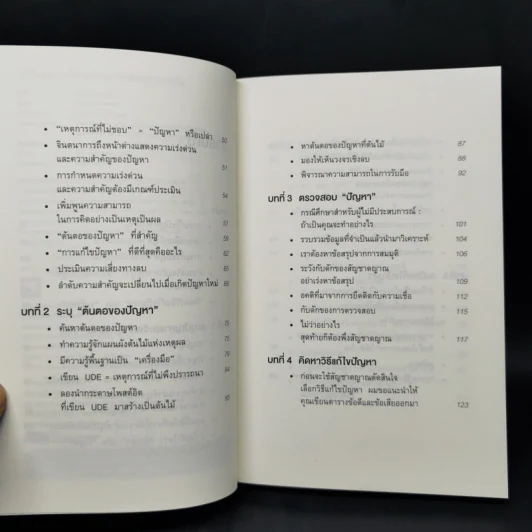 • “เหตุการณ์ที่ไม่ชอบ” = “ปัญหา” หรือเปล่า 50
• จินตนาการถึงหน้าต่างแสดงความเร่งด่วน
และความสำคัญของปัญหา 51
• การกำหนดความเร่งด่วน
และความสำคัญต้องมีเกณฑ์ประเมิน 54
• เพิ่มพูนความสามารถ
ในการคิดอย่างเป็นเหตุเป็นผล
• “ต้นตอของปัญหา” ที่สำคัญ 59
• “การแก้ไขปัญหา” ที่ดีที่สุดคืออะไร 62
• ประเมินความเสี่ยงทางลบ 65
• ลำดับความสำคัญจะเปลี่ยนไปเมื่อเกิดปัญหาใหม่
บทที่ 2 ระบุ “ต้นตอของปัญหา”
• ค้นหาต้นตอของปัญหา
• ทำความรู้จักแผนผังต้นไม้แห่งเหตุผล 75
• มีความรู้พื้นฐานเป็น “เครื่องมือ”
• เขียน UDE = เหตุการณ์ที่ไม่พึงปรารถนา 84
• ลองนำกระดาษโพสต์อิต
ที่เขียน UDE มาสร้างเป็นต้นไม้
• หาต้นตอของปัญหาที่ต้นไม้ 87
• มองให้เห็นวงจรเชิงลบ 88
• พิจารณาความสามารถในการรับมือ 92
บทที่ 3 ตรวจสอบ “ปัญหา”
• กรณีศึกษาสำหรับผู้ไม่มีประสบการณ์ :
ถ้าเป็นคุณจะทำอย่างไร 101
• รวบรวมข้อมูลที่จำเป็นแล้วนำมาวิเคราะห์ 104
• เราต้องหาข้อสรุปจากการสมมุติ 106
• ระวังกับดักของสัญชาตญาณ
อย่าเร่งหาข้อสรุป 109
• อคติที่มาจากการยึดติดกับความเชื่อ 112
• กับดักของการตรวจสอบ 115
• ไม่ว่าอย่างไร
สุดท้ายก็ต้องพึ่งสัญชาตญาณ 117
บทที่ 4 คิดหาวิธีแก้ไขปัญหา
• ก่อนจะใช้สัญชาตญาณตัดสินใจ
เลือกวิธีแก้ไขปัญหา ผมขอแนะนำให้
คุณเขียนตารางข้อดีและข้อเสียออกมา 123